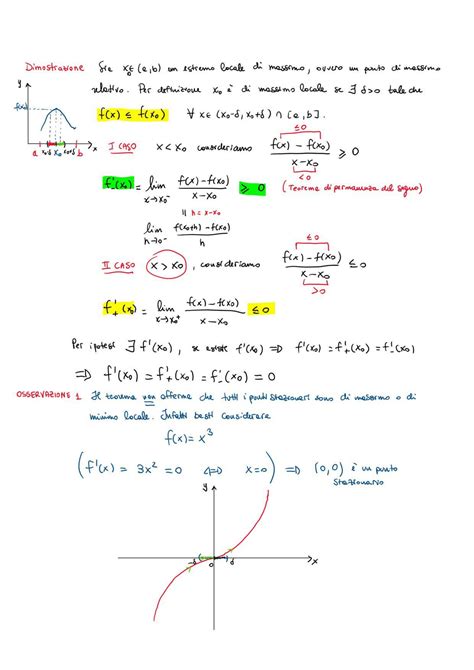 Dimostrazione Sia x₀∈(a,b) un estremo locale di massimo, ovvero un punto di massimo
relativo. Per definizione x₀ è di massimo locale se ∃ δ>0 tale che
f(x) ≤ f(x₀) ∀ x∈ (x₀-δ, x₀+δ) ∩ [a,b].
y
f(x₀)
a x₀-δ x₀ x₀+δ b x
I CASO x < x₀ consideriamo (f(x) - f(x₀))/(x-x₀) ≥ 0
≤0
<0
f'₋(x₀) = lim x→x₀⁻ (f(x)-f(x₀))/(x-x₀) ≥ 0 (Teorema di permanenza del segno)
|| h = x-x₀
lim h→0⁻ (f(x₀+h) - f(x₀))/h
II CASO x > x₀, consideriamo (f(x)-f(x₀))/(x-x₀) ≤ 0
≤0
>0
f'₊(x₀) = lim x→x₀⁺ (f(x)-f(x₀))/(x-x₀) ≤ 0
Per ipotesi ∃ f'(x₀), se esiste f'(x₀) ⇒ f'(x₀) = f'₊(x₀) = f'₋(x₀)
⇒ f'(x₀) = f'₊(x₀) = f'₋(x₀) = 0
OSSERVAZIONE 1 Il teorema non afferma che tutti i punti stazionari sono di massimo o di
minimo locale. Infatti basti considerare
f(x) = x³
(f'(x) = 3x² = 0 ⇔ x=0) ⇒ (0,0) è un punto
stazionario
y
-δ 0 δ x